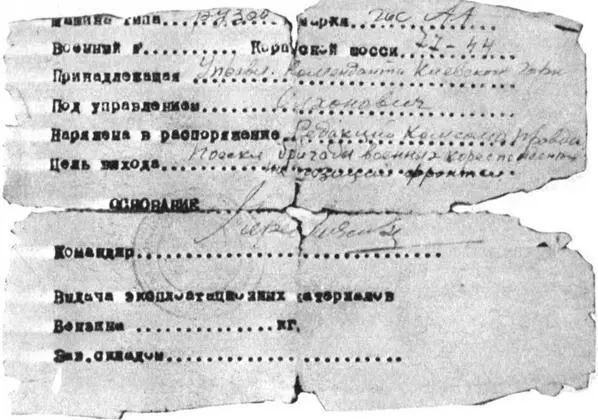 Машина типа грузов марка гас АА
Военный № Кор Шасси 77-44
Принадлежащая Управл. Коменданта Киевской
Под управлением
Наряжена в распоряжение Редакцию Комсомол. Правды
Цель выхода Поездка бригады военных кореспондентов
на позиции фронта
ОСНОВАНИЕ
Командир
Выдача эксплоатационных материалов
Бензина кг.
Зав.складом